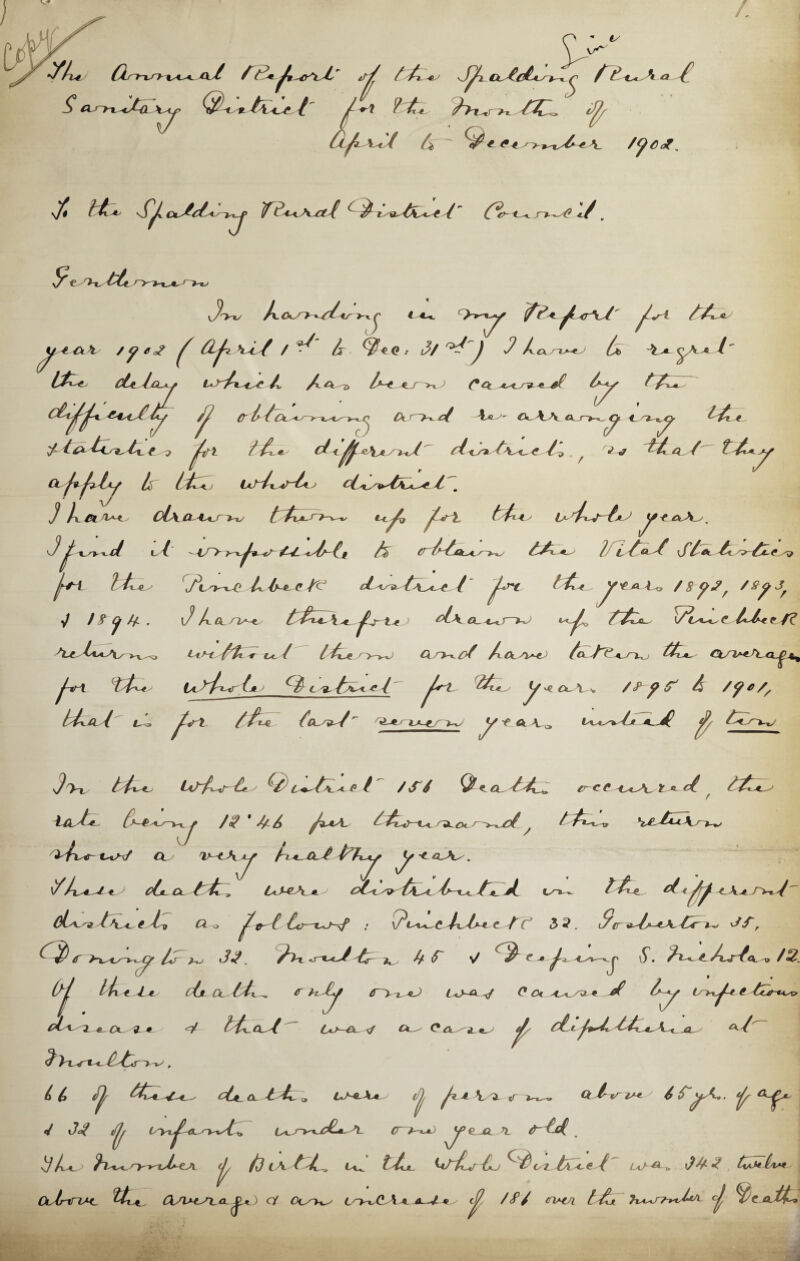 1.
Copy
The Annual Report of the Spalding Rural
Sanitary District for the Nine Months of
April to December 1902.
To the Spalding Rural District Council.
Gentlemen
In handing in my Report for the
year 1902 (April 1st to Dec. 31st) I have to regret
the delay which has been caused by the
difficulty of obtaining and re-arranging the
statistics for the different districts, so that they
apply to the whole district.
I have drawn them up for the whole year.
I find it impossible to obtain the Vital Statistics
for the Pinchbeck district for the years 1892, 1893,
& 1894. I have therefore drawn up the Pinchbeck
returns without them and have taken the average
for the Whole District for the years 1895 to 1901,
that is for the last seven years instead of ten
In the Whole District 156 Deaths occurred, the
rate being 12.46 per thousand, this return
shows a very healthy year.
These deaths were distributed in the different
districts as follows: Pinchbeck 32. Gosberton 35,
Donington 32. Moulton 45 & Deeping S. Nicholas 12.
Of these deaths only one was caused by infectious
disease & that was a case of diphtheria at
Moulton.
66 of these deaths were of persons above 65 yrs. of age
& 32 of infants under one year old.
The Number of Births in the Whole District was 342 twelve
above the average & an increase of 186 over the number of Deaths